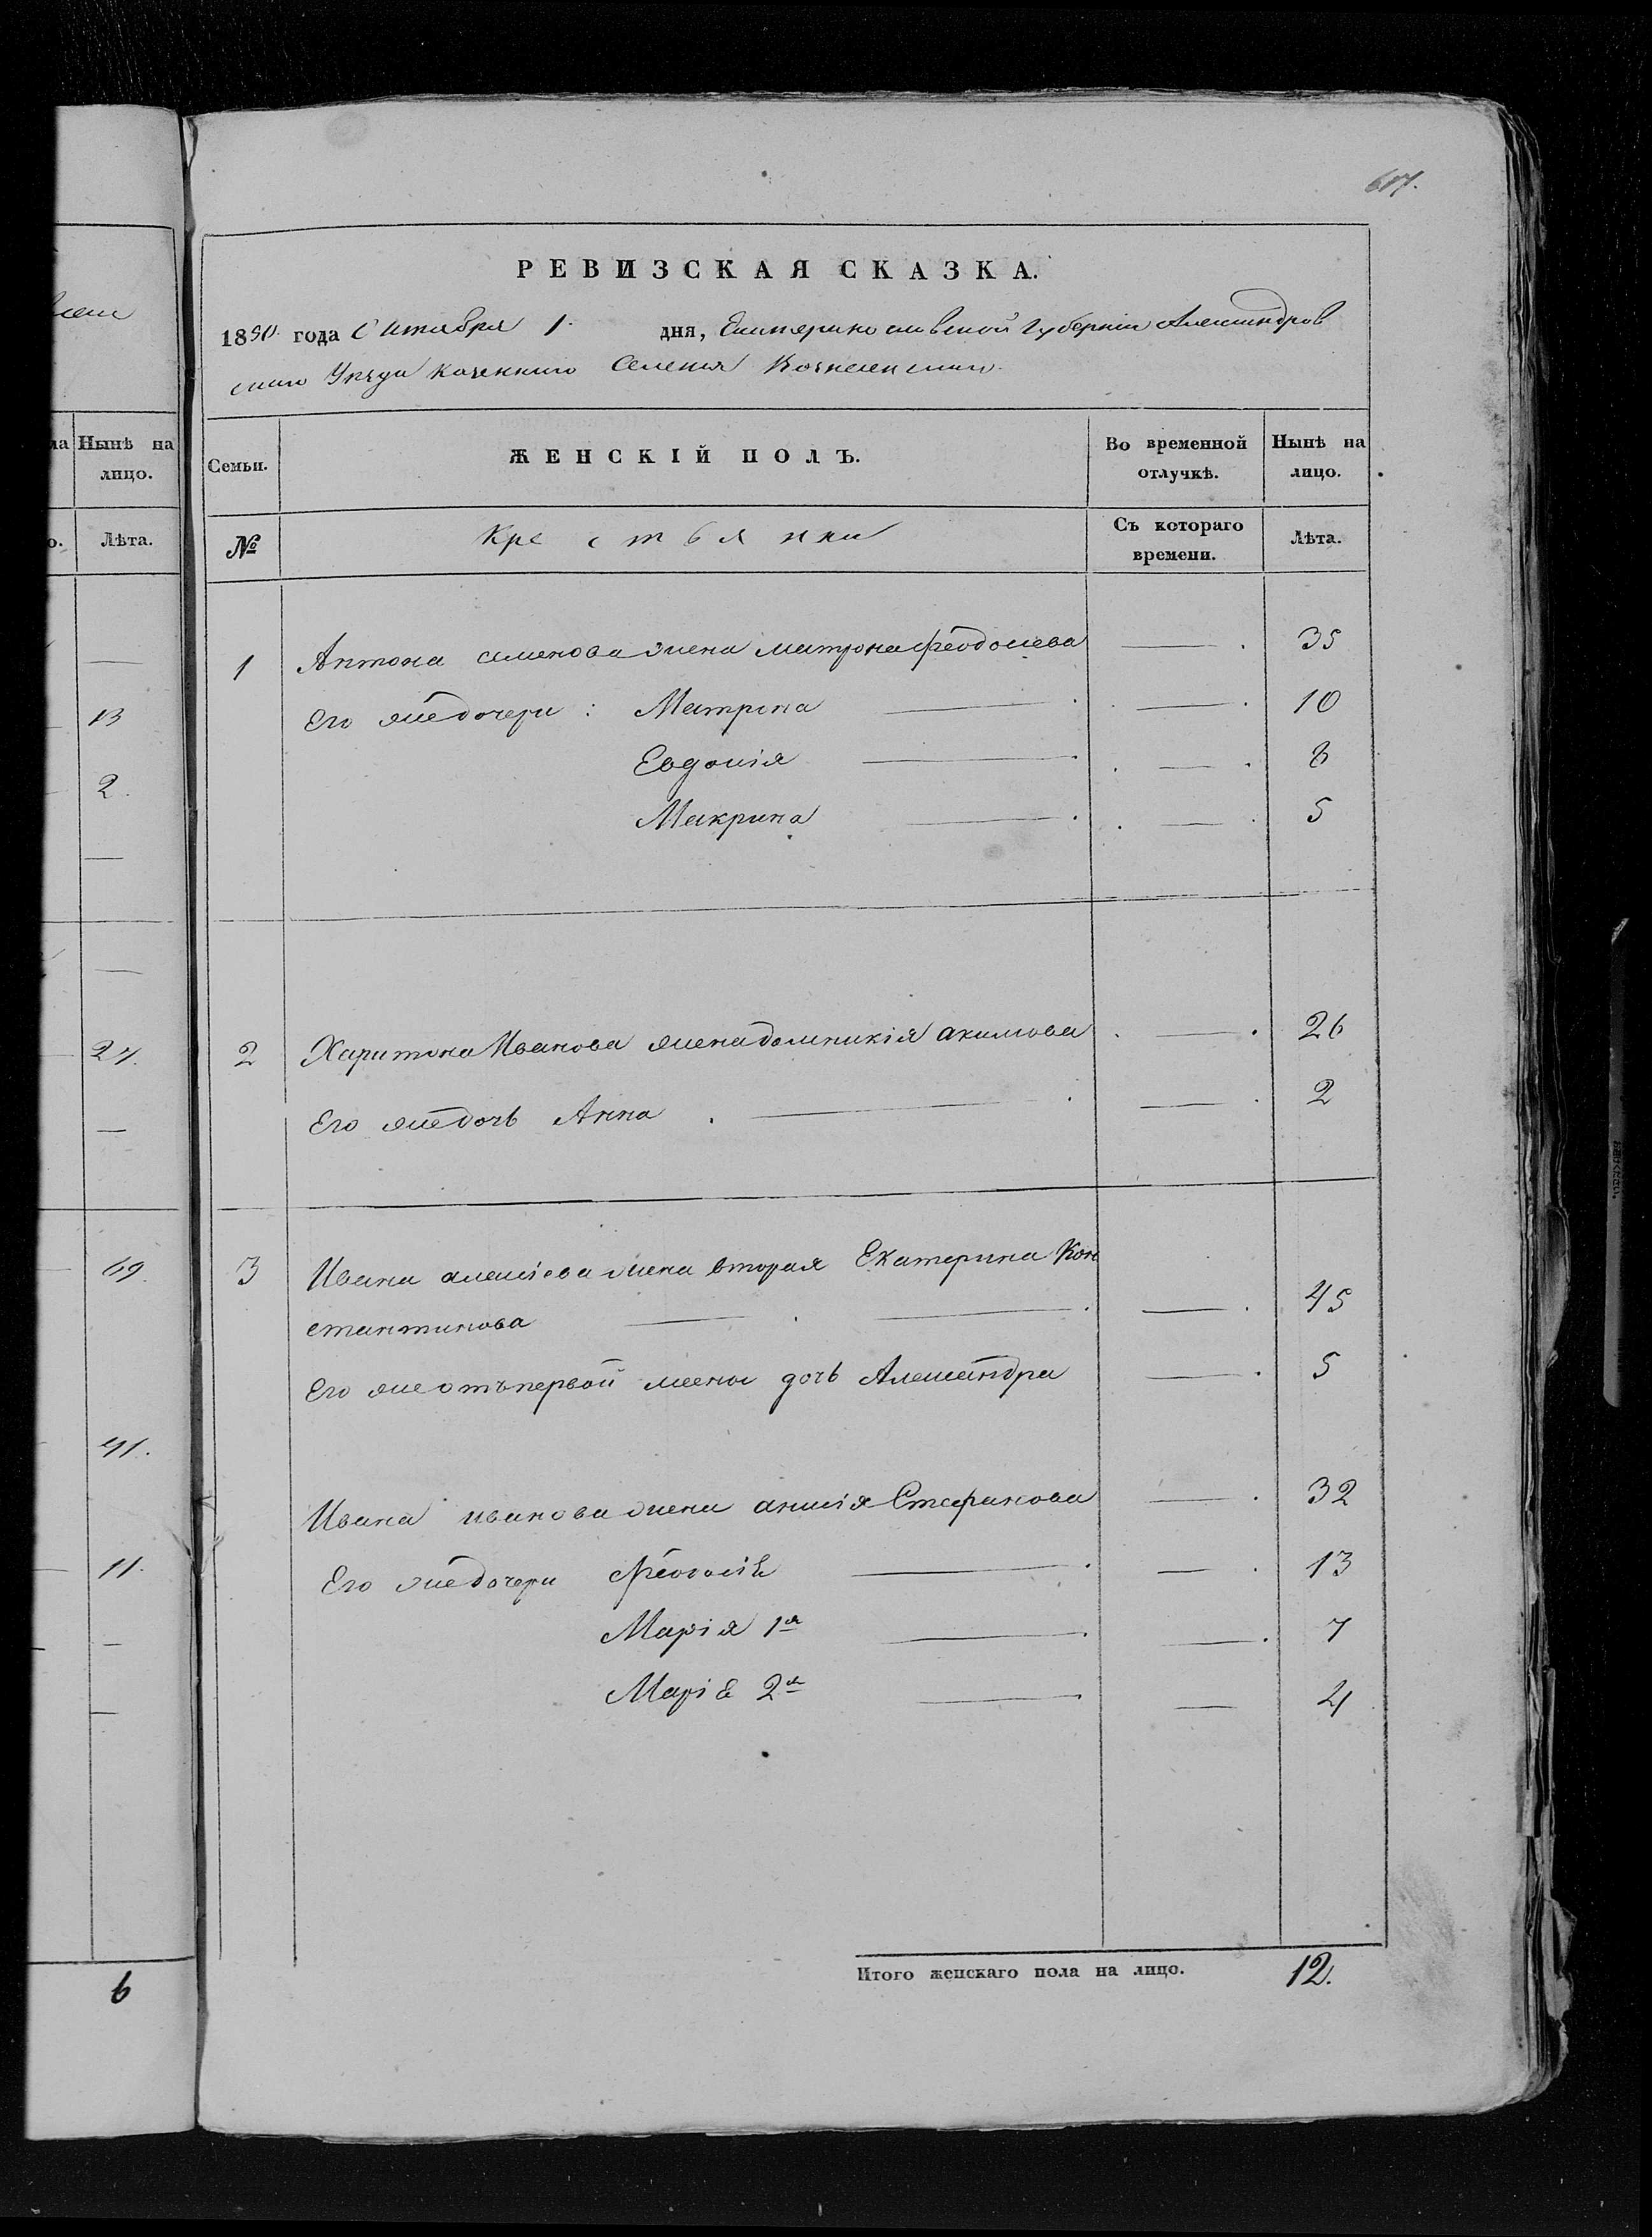 617.
лицо.
Нынѣ на
лицо.
Лѣта.
13
2.
24.
69.
41.
11.
6
РЕВИЗСКАЯ СКАЗКА.
1850 года Октября 1. дня, Екатеринославской Губерніи Александров
скаго Уѣзда казеннаго Селенія Вознесенскаго.
Семьи. ЖЕНСКІЙ ПОЛЪ. Во временной отлучкѣ. Нынѣ на лицо.
№ Крестьянки Съ котораго времени. Лѣта.
1 Антона семенова жена матрона феодосиева 35
Его же дочери: Матрона 10
Евдокія 8
Макрина 5
2 Харитона Иванова жена домникія акимова 26
Его же дочь Анна 2
3 Ивана алексіева жена вторая Екатерина Кон
стантинова 45
Его же отъ первой жены дочь Александра 5
Ивана иванова жена анисія Стефанова 32
Его же дочери феодосія 13
Марія 1я 7
Марія 2я 4
Итого женскаго пола на лицо. 12.